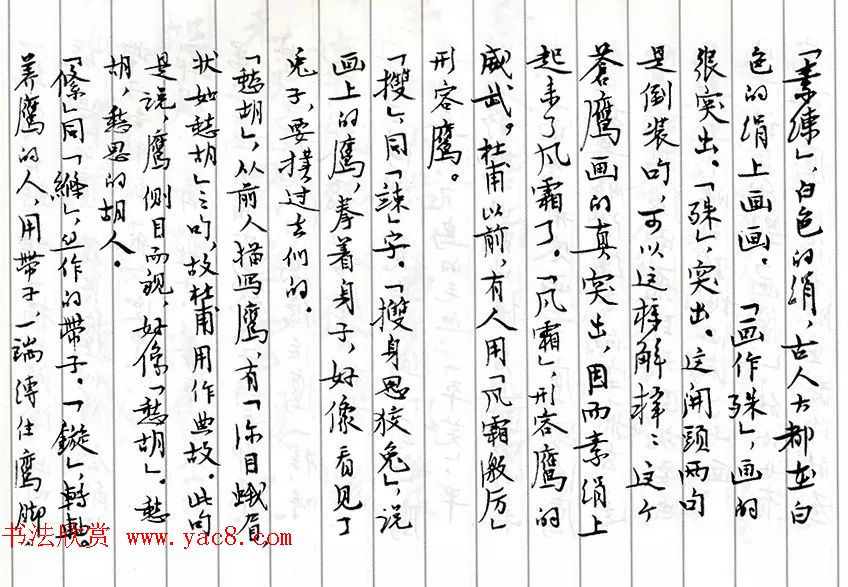 「素练」，白色的绢，古人大都在白
色的绢上画画。「画作殊」，画的
很突出。「殊」，突出。这开头两句
是倒装句，可以这样解释：这个
苍鹰画的真突出，因而素绢上
起来了风霜了。「风霜」，形容鹰的
威武。杜甫以前，有人用「风霜激厉」
形容鹰。
「㩳」，同「竦」字。「㩳身思狡兔」，说
画上的鹰，拳着身子，好像看见了
兔子，要扑过去们的。
「愁胡」，从前人描写鹰，有「深目蛾眉，
状如愁胡」之句，故杜甫用作典故。此句
是说，鹰侧目而视，好像「愁胡」。愁
胡，愁思的胡人。
「絛」同「縧」，丝作的带子。「鏇」，轉動。
养鹰的人，用带子，一端缚住鹰脚，
书法欣赏 www.yac8.com